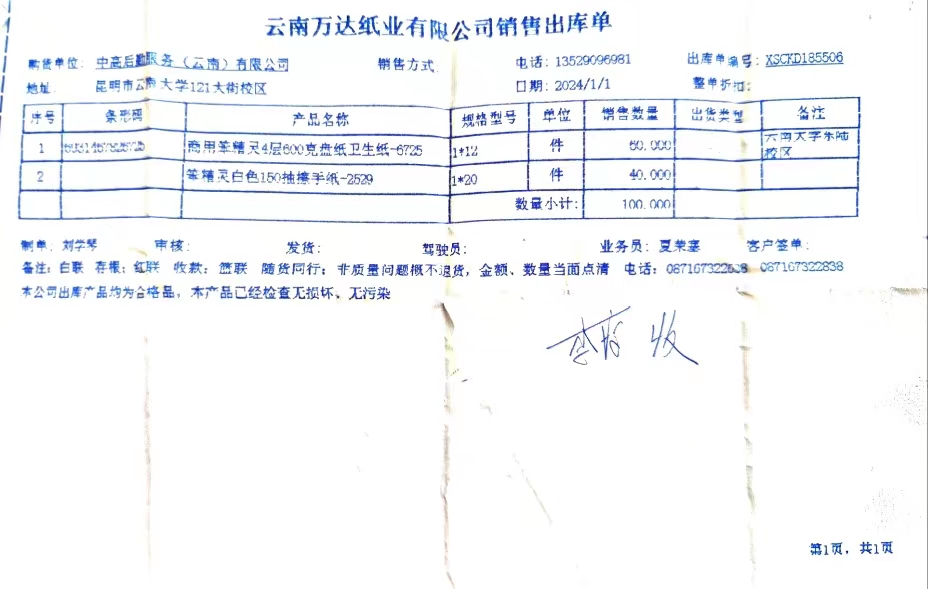 云南万达纸业有限公司销售出库单
购货单位: 中高后勤服务（云南）有限公司 销售方式: 电话: 13529096981 出库单编号: XSCKD185506
地址: 昆明市云南大学121大街校区 日期: 2024/1/1 整单折扣:
序号 条形码 产品名称 规格型号 单位 销售数量 出货类型 备注
1 商用笨精灵4层600克盘纸卫生纸-6725 1*12 件 60.000 云南大学东陆校区
2 笨精灵白色150抽擦手纸-2529 1*20 件 40.000
数量小计: 100.000
制单: 刘学琴 审核: 发货: 驾驶员: 业务员: 夏荣塞 客户签单:
备注: 白联 存根; 红联 收款; 篮联 随货同行; 非质量问题概不退货, 金额、数量当面点清 电话: 087167322838 087167322838
本公司出库产品均为合格品, 本产品已经检查无损坏、无污染
收
第1页, 共1页